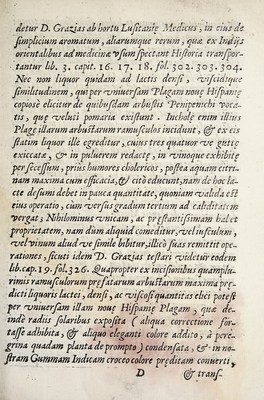 detur D. Grazias ab horto Lusitanię Medicus, in eius de
simplicium aromatum, aliarumque rerum, quæ ex Indijs
orientalibus ad medicinæ vsum spectant Historia transpor-
tantur lib. 3. capit. 16. 17. 18. fol. 302. 303. 304.
Nec non liquor quidam ad lactis densi, viscidique
similitudinem, qui per vniuersam Plagam nouę Hispanię
copiosè elicitur de quibusdam arbustis Penipenichi voca-
tis, quę veluti pomaria existunt. Incholę enim illius
Plagę illarum arbustarum ramusculos incidunt, & ex eis
statim liquor ille egreditur, cuius tres quatuor ve guttę
exiccatę, & in puluerem redactę, in vinoque exhibitę
per secessum, prius humores cholericos, postea aquam citri-
nam maxima cum efficacia, & citò educunt, nam de hoc la-
cte desumi debet in pauca quantitate, quoniam valida est
eius operatio, cùm versus gradum tertium ad caliditatem
vergat; Nihilominus vnicam, ac pręstantissimam habet
proprietatem, nam dùm aliquid comeditur, vel iusculum,
vel vinum aliud ve simile bibitur, illicò suas remittit ope-
rationes, sicuti idem D. Grazias testari videtur eodem
lib. cap. 19. fol. 326. Quapropter ex incisionibus quamplu-
rimis ramusculorum pręfatarum arbustarum maxima prę-
dicti liquoris lactei, densi, ac viscosi quantitas elici potest
per vniuersam illam nouę Hispanię Plagam, quæ de-
indè radiis solaribus exposita (aliqua correctione for-
tasse adhibita, & aliquo eleganti colore addito, à pere-
grina quadam planta de prompto) condensata, & in no-
stram Gummam Indicam croceo colore pręditam conuerti,
D & trans-